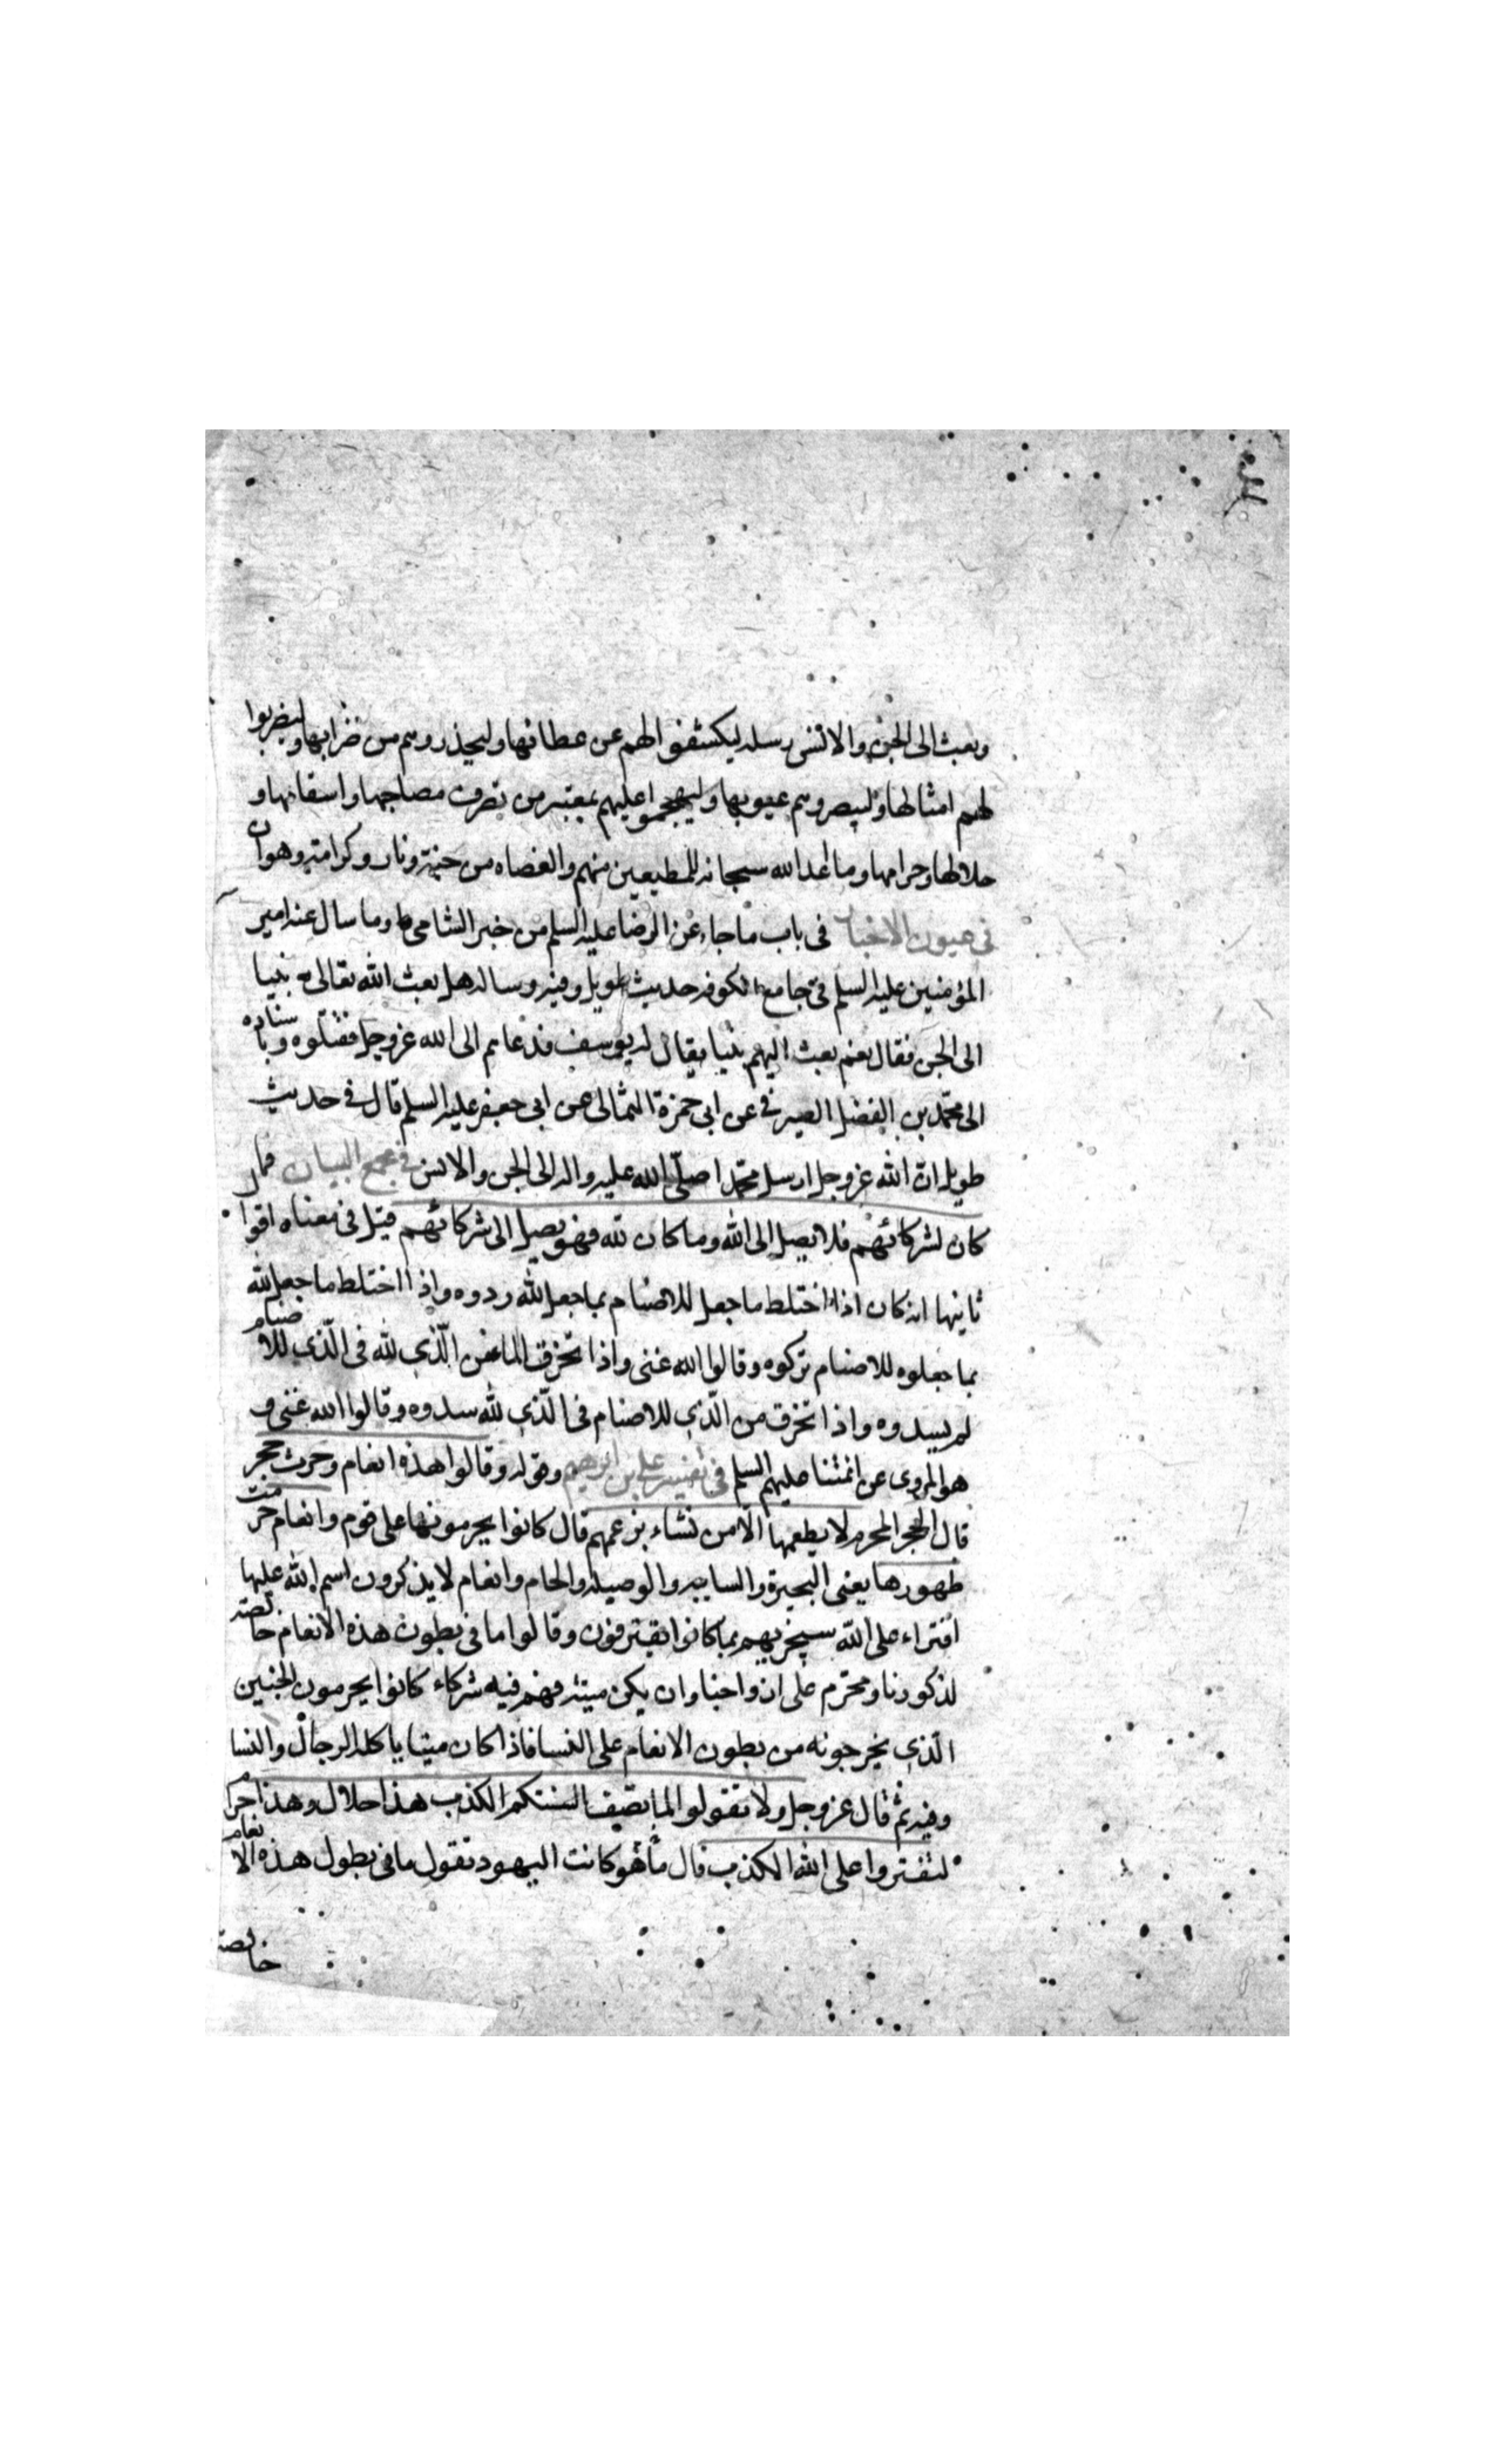 وبعث الى الجن والانس رسله ليكشفوا لهم عن غطائها وليحذروهم من ضرائها وليضربوا
لهم امثالها وليبصروهم عيوبها وليهجموا عليهم بمعتبر من تصرف مصاحها واسقامها و
حلالها وحرامها وما اعد الله سبحانه للمطيعين منهم والعصاه من جنة ونار وكرامة وهوان
فى عيون الاخبار فى باب ما جاء عن الرضا عليه السلم من خبر الشامى وما سال عنه امير
المؤمنين عليه السلم فى جامع الكوفه حديث طويل وفيه وساله هل بعث الله تعالى نبيا
الى الجن فقال نعم بعث اليهم نبيا يقال له يوسف فدعاهم الى الله عزوجل فقتلوه وباسناده
الى محمد بن الفضل الصيرفى عن ابى حمزة الثمالى عن ابى جعفر عليه السلم قال فى حديث
طويل ان الله عزوجل ارسل محمدا صلى الله عليه واله الى الجن والانس فى مجمع البيان فما
كان لشركائهم فلا يصل الى الله وما كان لله فهو يصل الى شركائهم قيل فى معناه اقوال
ثانيها انه كان اذا اختلط ما جعل للاصنام بما جعل لله ردوه واذا اختلط ما جعل لله
بما جعلوه للاصنام تركوه وقالوا الله غنى واذا تخرق الماء من الّذى لله فى الّذى للاصنام
لم يسدوه واذا تخرق من الّذى للاصنام فى الّذى لله سدوه وقالوا الله غنى و
هو المروى عن ائمتنا عليهم السلم فى تفسير على بن ابرهيم وقوله وقالوا هذه انعام وحرث حجر
قال الحجر المحرم لا يطعمها الّا من نشاء بزعمهم قال كانوا يحرمونها على قوم وانعام حرمت
ظهورها يعنى البحيرة والسايبه والوصيله والحام وانعام لا يذكرون اسم الله عليها
افتراء على الله سيجزيهم بما كانوا يفترون وقالوا ما فى بطون هذه الانعام خالصة
لذكورنا ومحرّم على ازواجنا وان يكن ميتة فهم فيه شركاء كانوا يحرمون الجنين
الّذى يخرجونه من بطون الانعام على النسا فاذا كان ميتا ياكله الرجال والنسا
وفيه ثم قال عزوجل ولا تقولوا لما تصف السنتكم الكذب هذا حلال وهذا حرام
لتفتروا على الله الكذب قال ما هو كانت اليهود تقول ما فى بطون هذه الانعام
خالصة